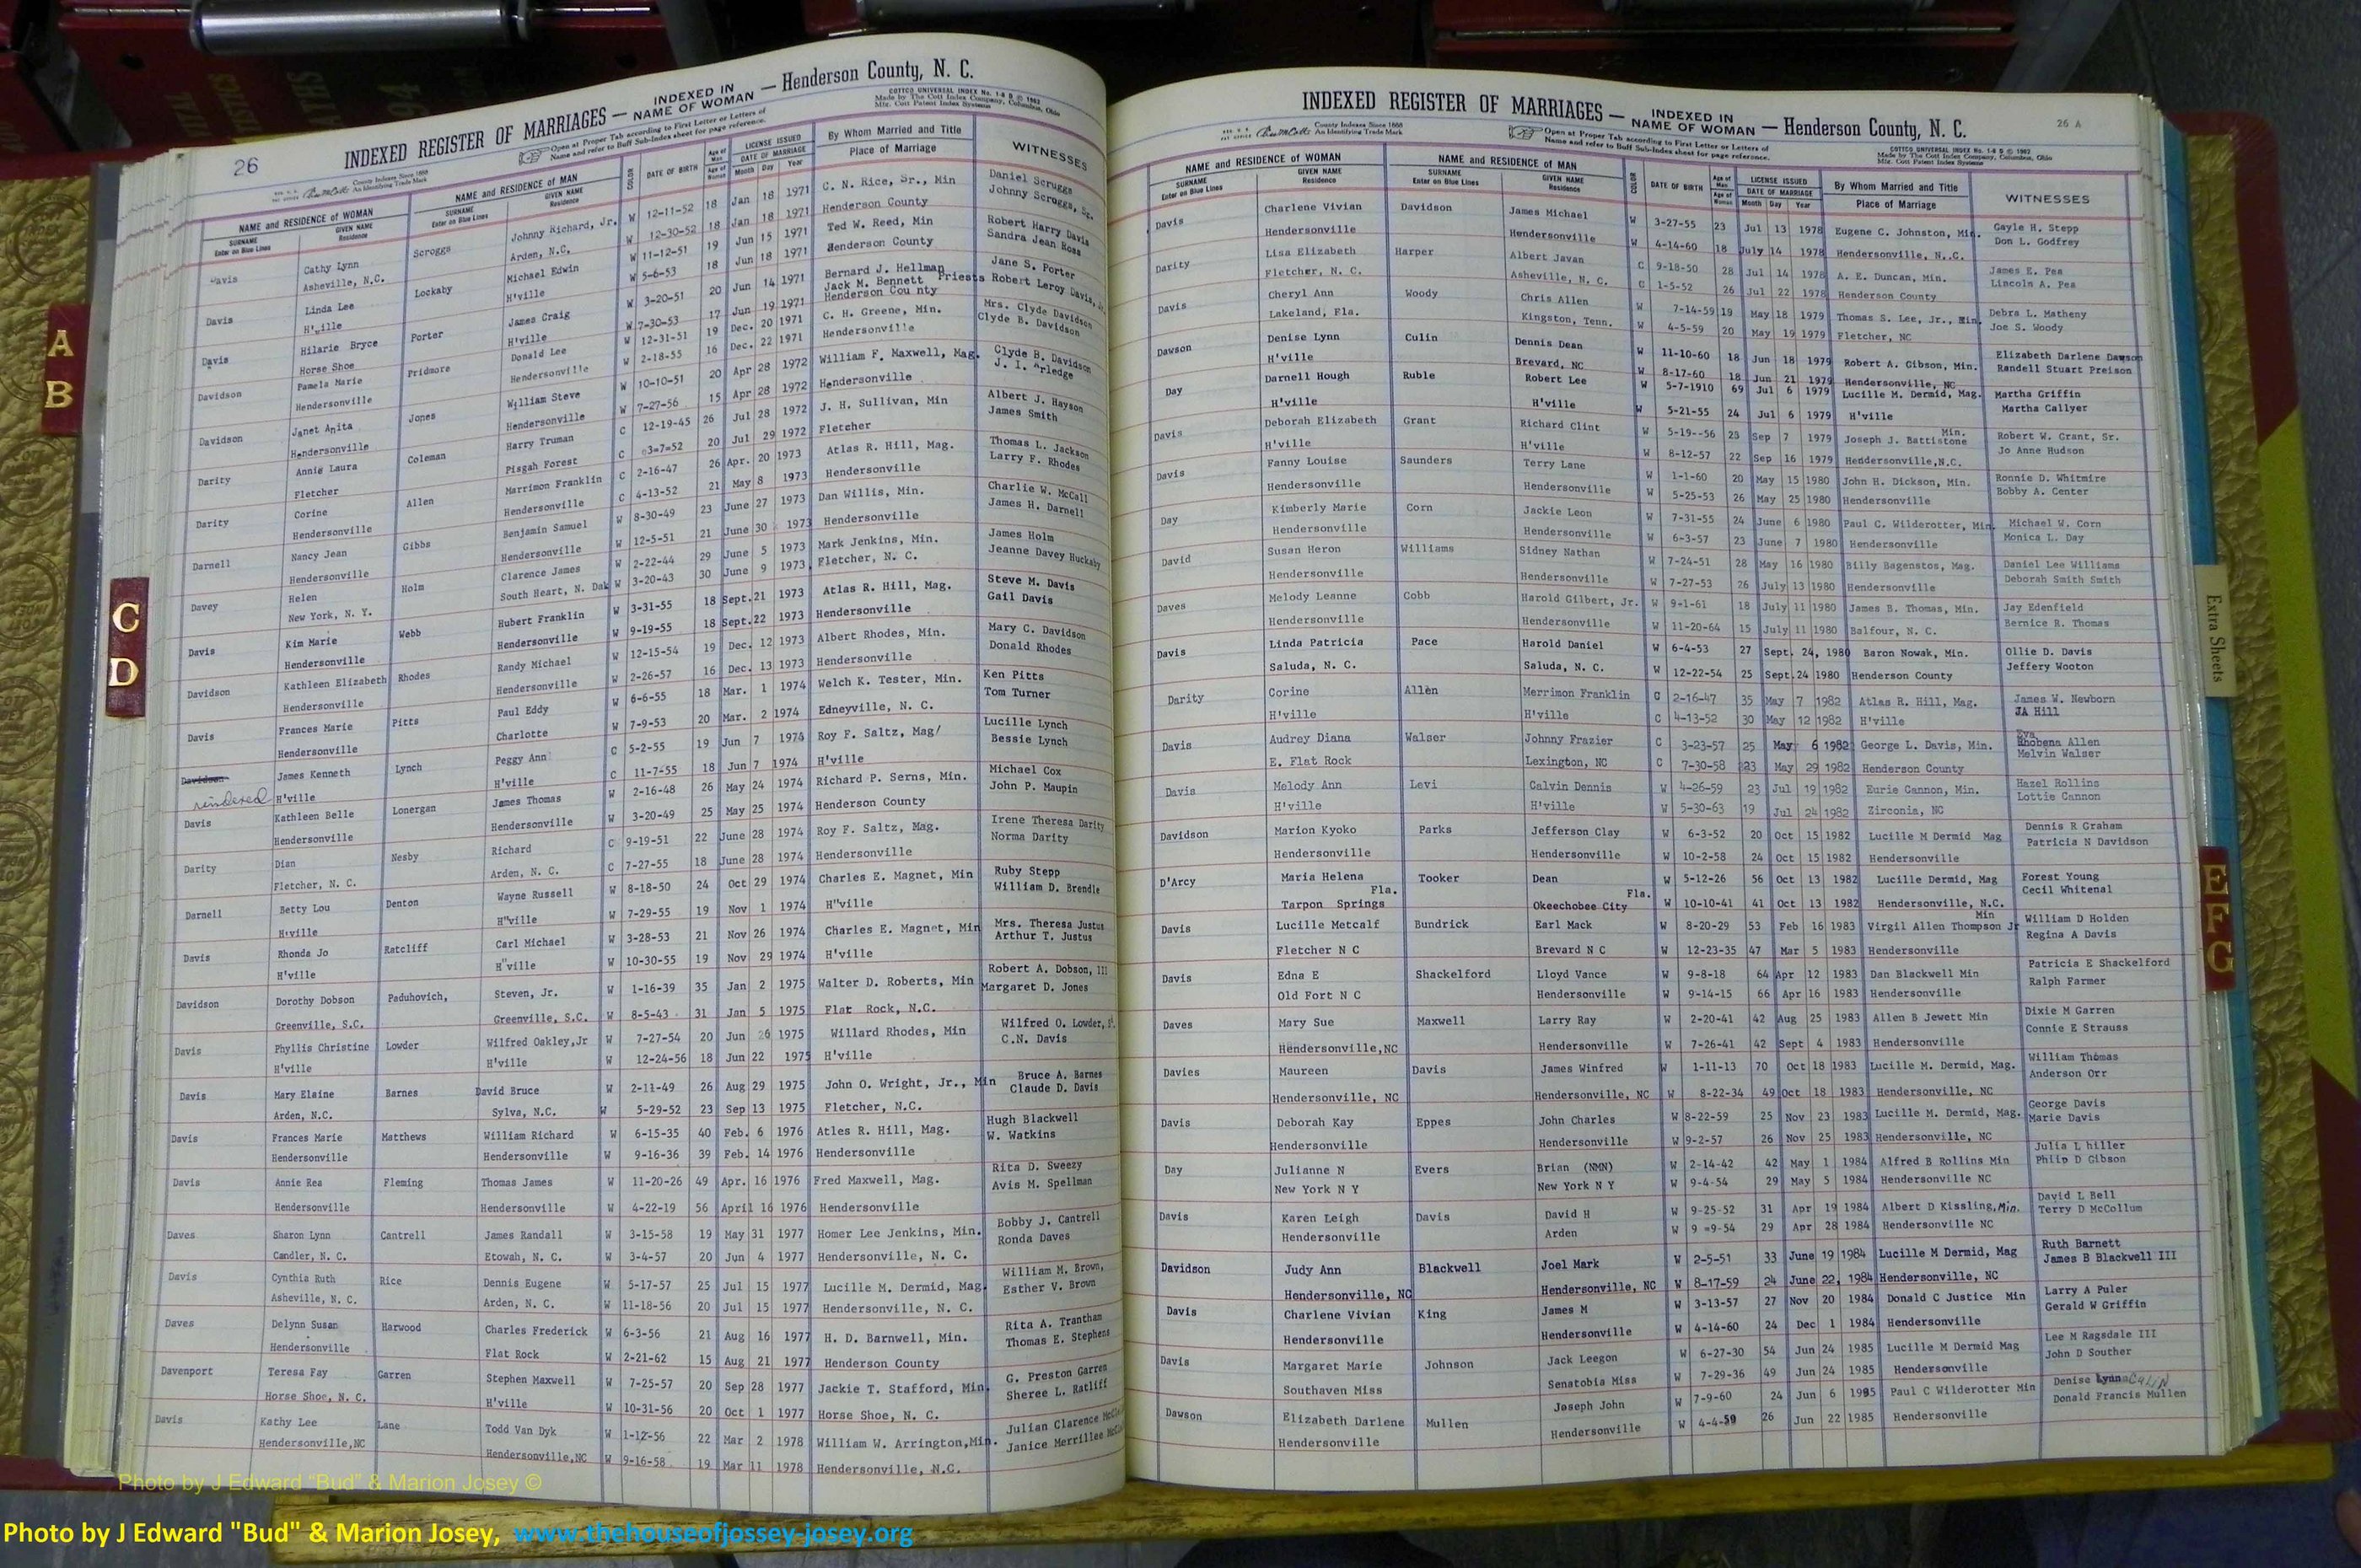 26
INDEXED REGISTER OF MARRIAGES — INDEXED IN NAME OF WOMAN — Henderson County, N. C.
Open at Proper Tab according to First Letter or Letters of
Name and refer to Buff Sub-Index sheet for page reference.
COTTCO UNIVERSAL INDEX No. 1-8 D © 1962
Made by The Cott Index Company, Columbus, Ohio
Mfr. Cott Patent Index Systems
County Indexes Since 1888
An Identifying Trade Mark
NAME and RESIDENCE OF WOMAN NAME and RESIDENCE OF MAN COLOR DATE OF BIRTH Age of Man LICENSE ISSUED By Whom Married and Title WITNESSES
SURNAME GIVEN NAME SURNAME GIVEN NAME Age of Woman DATE OF MARRIAGE Place of Marriage
Enter on Blue Lines Residence Enter on Blue Lines Residence Month Day Year
Davis Cathy Lynn Scroggs Johnny Richard, Jr. W 12-11-52 18 Jan 18 1971 C. N. Rice, Sr., Min Daniel Scruggs
Asheville, N.C. Arden, N.C. W 12-30-52 18 Jan 18 1971 Henderson County Johnny Scruggs, Sr.
Davis Linda Lee Lockaby Michael Edwin W 11-12-51 19 Jun 15 1971 Ted W. Reed, Min Robert Harry Davis
H'ville H'ville W 5-6-53 18 Jun 18 1971 Henderson County Sandra Jean Ross
Davis Hilarie Bryce Porter James Craig W 3-20-51 20 Jun 14 1971 Bernard J. Hellman Jack M. Bennett Priests Jane S. Porter
Horse Shoe H'ville W 7-30-53 17 Jun 19 1971 Henderson Cou nty Robert Leroy Davis, Jr.
Davidson Pamela Marie Pridmore Donald Lee W 12-31-51 19 Dec. 20 1971 C. H. Greene, Min. Mrs. Clyde Davidson
Hendersonville Hendersonville W 2-18-55 16 Dec. 22 1971 Hendersonville Clyde B. Davidson
Davidson Janet Anita Jones William Steve W 10-10-51 20 Apr 28 1972 William F. Maxwell, Mag. Clyde B. Davidson
Hendersonville Hendersonville W 7-27-56 15 Apr 28 1972 Hendersonville J. I. Arledge
Darity Annie Laura Coleman Harry Truman C 12-19-45 26 Jul 28 1972 J. H. Sullivan, Min Albert J. Hayson
Fletcher Pisgah Forest C 3=7=52 20 Jul 29 1972 Fletcher James Smith
Darity Corine Allen Marrimon Franklin C 2-16-47 26 Apr. 20 1973 Atlas R. Hill, Mag. Thomas L. Jackson
Hendersonville Hendersonville C 4-13-52 21 May 8 1973 Hendersonville Larry F. Rhodes
Darnell Nancy Jean Gibbs Benjamin Samuel W 8-30-49 23 June 27 1973 Dan Willis, Min. Charlie W. McCall
Hendersonville Hendersonville W 12-5-51 21 June 30 1973 Hendersonville James H. Darnell
Davey Helen Holm Clarence James W 2-22-44 29 June 5 1973 Mark Jenkins, Min. James Holm
New York, N. Y. South Heart, N. Dak W 3-20-43 30 June 9 1973 Fletcher, N. C. Jeanne Davey Huckaby
Davis Kim Marie Webb Hubert Franklin W 3-31-55 18 Sept. 21 1973 Atlas R. Hill, Mag. Steve M. Davis
Hendersonville Hendersonville W 9-19-55 18 Sept. 22 1973 Hendersonville Gail Davis
Davidson Kathleen Elizabeth Rhodes Randy Michael W 12-15-54 19 Dec. 12 1973 Albert Rhodes, Min. Mary C. Davidson
Hendersonville Hendersonville W 2-26-57 16 Dec. 13 1973 Hendersonville Donald Rhodes
Davis Frances Marie Pitts Paul Eddy W 6-6-55 18 Mar. 1 1974 Welch K. Tester, Min. Ken Pitts
Hendersonville Charlotte W 7-9-53 20 Mar. 2 1974 Edneyville, N. C. Tom Turner
Davidson James Kenneth Lynch Peggy Ann C 5-2-55 19 Jun 7 1974 Roy F. Saltz, Mag/ Lucille Lynch
H'ville H'ville C 11-7-55 18 Jun 7 1974 H'ville Bessie Lynch
Davis Kathleen Belle Lonergan James Thomas W 2-16-48 26 May 24 1974 Richard P. Serns, Min. Michael Cox
Hendersonville Hendersonville W 3-20-49 25 May 25 1974 Henderson County John P. Maupin
Darity Dian Nesby Richard C 9-19-51 22 June 28 1974 Roy F. Saltz, Mag. Irene Theresa Darity
Fletcher, N. C. Arden, N. C. C 7-27-55 18 June 28 1974 Hendersonville Norma Darity
Darnell Betty Lou Denton Wayne Russell W 8-18-50 24 Oct 29 1974 Charles E. Magnet, Min Ruby Stepp
H'ville H"ville W 7-29-55 19 Nov 1 1974 H"ville William D. Brendle
Davis Rhonda Jo Ratcliff Carl Michael W 3-28-53 21 Nov 26 1974 Charles E. Magnet, Min Mrs. Theresa Justus
H'ville H"ville W 10-30-55 19 Nov 29 1974 H'ville Arthur T. Justus
Davidson Dorothy Dobson Paduhovich, Steven, Jr. W 1-16-39 35 Jan 2 1975 Walter D. Roberts, Min Robert A. Dobson, III
Greenville, S.C. Greenville, S.C. W 8-5-43 31 Jan 5 1975 Flat Rock, N.C. Margaret D. Jones
Davis Phyllis Christine Lowder Wilfred Oakley,Jr W 7-27-54 20 Jun 26 1975 Willard Rhodes, Min Wilfred O. Lowder, Sr.
H'ville H'ville W 12-24-56 18 Jun 22 1975 H'ville C.N. Davis
Davis Mary Elaine Barnes David Bruce W 2-11-49 26 Aug 29 1975 John O. Wright, Jr., Min Bruce A. Barnes
Arden, N.C. Sylva, N.C. W 5-29-52 23 Sep 13 1975 Fletcher, N.C. Claude D. Davis
Davis Frances Marie Matthews William Richard W 6-15-35 40 Feb. 6 1976 Atles R. Hill, Mag. Hugh Blackwell
Hendersonville Hendersonville W 9-16-36 39 Feb. 14 1976 Hendersonville W. Watkins
Davis Annie Rea Fleming Thomas James W 11-20-26 49 Apr. 16 1976 Fred Maxwell, Mag. Rita D. Sweezy
Hendersonville Hendersonville W 4-22-19 56 April 16 1976 Hendersonville Avis M. Spellman
Daves Sharon Lynn Cantrell James Randall W 3-15-58 19 May 31 1977 Homer Lee Jenkins, Min. Bobby J. Cantrell
Candler, N. C. Etowah, N. C. W 3-4-57 20 Jun 4 1977 Hendersonville, N. C. Ronda Daves
Davis Cynthia Ruth Rice Dennis Eugene W 5-17-57 25 Jul 15 1977 Lucille M. Dermid, Mag. William M. Brown,
Asheville, N. C. Arden, N. C. W 11-18-56 20 Jul 15 1977 Hendersonville, N. C. Esther V. Brown
Daves Delynn Susan Harwood Charles Frederick W 6-3-56 21 Aug 16 1977 H. D. Barnwell, Min. Rita A. Trantham
Hendersonville Flat Rock W 2-21-62 15 Aug 21 1977 Henderson County Thomas E. Stephens
Davenport Teresa Fay Garren Stephen Maxwell W 7-25-57 20 Sep 28 1977 Jackie T. Stafford, Min. G. Preston Garren
Horse Shoe, N. C. H'ville W 10-31-56 20 Oct 1 1977 Horse Shoe, N. C. Sheree L. Ratliff
Davis Kathy Lee Lane Todd Van Dyk W 1-12-56 22 Mar 2 1978 William W. Arrington,Min. Julian Clarence
Hendersonville,NC Hendersonville,NC W 9-16-58 19 Mar 11 1978 Hendersonville, N.C. Janice Merrillee
26 A
INDEXED REGISTER OF MARRIAGES — INDEXED IN NAME OF WOMAN — Henderson County, N. C.
County Indexes Since 1888
An Identifying Trade Mark
Open at Proper Tab according to First Letter or Letters of
Name and refer to Buff Sub-Index sheet for page reference.
COTTCO UNIVERSAL INDEX No. 1-8 D © 1962
Made by The Cott Index Company, Columbus, Ohio
Mfr. Cott Patent Index Systems
NAME and RESIDENCE OF WOMAN NAME and RESIDENCE OF MAN COLOR DATE OF BIRTH Age of Man LICENSE ISSUED By Whom Married and Title WITNESSES
SURNAME GIVEN NAME SURNAME GIVEN NAME Age of Woman DATE OF MARRIAGE Place of Marriage
Enter on Blue Lines Residence Enter on Blue Lines Residence Month Day Year
Davis Charlene Vivian Davidson James Michael W 3-27-55 23 Jul 13 1978 Eugene C. Johnston, Min. Gayle H. Stepp
Hendersonville Hendersonville W 4-14-60 18 July 14 1978 Hendersonville, N..C. Don L. Godfrey
Darity Lisa Elizabeth Harper Albert Javan C 9-18-50 28 Jul 14 1978 A. E. Duncan, Min. James E. Pea
Fletcher, N. C. Asheville, N. C. C 1-5-52 26 Jul 22 1978 Henderson County Lincoln A. Pea
Davis Cheryl Ann Woody Chris Allen W 7-14-59 19 May 18 1979 Thomas S. Lee, Jr., Min. Debra L. Matheny
Lakeland, Fla. Kingston, Tenn. W 4-5-59 20 May 19 1979 Fletcher, NC Joe S. Woody
Dawson Denise Lynn Culin Dennis Dean W 11-10-60 18 Jun 18 1979 Robert A. Gibson, Min. Elizabeth Darlene Dawson
H'ville Brevard, NC W 8-17-60 18 Jun 21 1979 Hendersonville, NC Randell Stuart Preison
Day Darnell Hough Ruble Robert Lee W 5-7-1910 69 Jul 6 1979 Lucille M. Dermid, Mag. Martha Griffin
H'ville H'ville W 5-21-55 24 Jul 6 1979 H'ville Martha Callyer
Davis Deborah Elizabeth Grant Richard Clint W 5-19--56 23 Sep 7 1979 Joseph J. Battistone Min. Robert W. Grant, Sr.
H'ville H'ville W 8-12-57 22 Sep 16 1979 Hendersonville,N.C. Jo Anne Hudson
Davis Fanny Louise Saunders Terry Lane W 1-1-60 20 May 15 1980 John H. Dickson, Min. Ronnie D. Whitmire
Hendersonville Hendersonville W 5-25-53 26 May 25 1980 Hendersonville Bobby A. Center
Day Kimberly Marie Corn Jackie Leon W 7-31-55 24 June 6 1980 Paul C. Wilderotter, Min. Michael W. Corn
Hendersonville Hendersonville W 6-3-57 23 June 7 1980 Hendersonville Monica L. Day
David Susan Heron Williams Sidney Nathan W 7-24-51 28 May 16 1980 Billy Bagenstos, Mag. Daniel Lee Williams
Hendersonville Hendersonville W 7-27-53 26 July 13 1980 Hendersonville Deborah Smith Smith
Daves Melody Leanne Cobb Harold Gilbert, Jr. W 9-1-61 18 July 11 1980 James B. Thomas, Min. Jay Edenfield
Hendersonville Hendersonville W 11-20-64 15 July 11 1980 Balfour, N. C. Bernice R. Thomas
Davis Linda Patricia Pace Harold Daniel W 6-4-53 27 Sept. 24, 1980 Baron Nowak, Min. Ollie D. Davis
Saluda, N. C. Saluda, N. C. W 12-22-54 25 Sept. 24 1980 Henderson County Jeffery Wooton
Darity Corine Allen Merrimon Franklin C 2-16-47 35 May 7 1982 Atlas R. Hill, Mag. James W. Newborn
H'ville H'ville C 4-13-52 30 May 12 1982 H'ville JA Hill
Davis Audrey Diana Walser Johnny Frazier C 3-23-57 25 May 6 1982 George L. Davis, Min. Eva Rhobena Allen
E. Flat Rock Lexington, NC C 7-30-58 23 May 29 1982 Henderson County Melvin Walser
Davis Melody Ann Levi Calvin Dennis W 4-26-59 23 Jul 19 1982 Eurie Cannon, Min. Hazel Rollins
H'ville H'ville W 5-30-63 19 Jul 24 1982 Zirconia, NC Lottie Cannon
Davidson Marion Kyoko Parks Jefferson Clay W 6-3-52 20 Oct 15 1982 Lucille M Dermid Mag Dennis R Graham
Hendersonville Hendersonville W 10-2-58 24 Oct 15 1982 Hendersonville Patricia N Davidson
D'Arcy Maria Helena Tooker Dean W 5-12-26 56 Oct 13 1982 Lucille Dermid, Mag Forest Young
Tarpon Springs Fla. Okeechobee City Fla. W 10-10-41 41 Oct 13 1982 Hendersonville, N.C. Cecil Whitenal
Davis Lucille Metcalf Bundrick Earl Mack W 8-20-29 53 Feb 16 1983 Virgil Allen Thompson Jr Min William D Holden
Fletcher N C Brevard N C W 12-23-35 47 Mar 5 1983 Hendersonville Regina A Davis
Davis Edna E Shackelford Lloyd Vance W 9-8-18 64 Apr 12 1983 Dan Blackwell Min Patricia E Shackelford
Old Fort N C Hendersonville W 9-14-15 66 Apr 16 1983 Hendersonville Ralph Farmer
Daves Mary Sue Maxwell Larry Ray W 2-20-41 42 Aug 25 1983 Allen B Jewett Min Dixie M Garren
Hendersonville,NC Hendersonville W 7-26-41 42 Sept 4 1983 Hendersonville Connie E Strauss
Davies Maureen Davis James Winfred W 1-11-13 70 Oct 18 1983 Lucille M. Dermid, Mag. William Thomas
Hendersonville, NC Hendersonville, NC W 8-22-34 49 Oct 18 1983 Hendersonville, NC Anderson Orr
Davis Deborah Kay Eppes John Charles W 8-22-59 25 Nov 23 1983 Lucille M. Dermid, Mag. George Davis
Hendersonville Hendersonville W 9-2-57 26 Nov 25 1983 Hendersonville, NC Marie Davis
Day Julianne N Evers Brian (NMN) W 2-14-42 42 May 1 1984 Alfred B Rollins Min Julia L hiller
New York N Y New York N Y W 9-4-54 29 May 5 1984 Hendersonville NC Philp D Gibson
Davis Karen Leigh Davis David H W 9-25-52 31 Apr 19 1984 Albert D Kissling, Min. David L Bell
Hendersonville Arden W 9 =9-54 29 Apr 28 1984 Hendersonville NC Terry D McCollum
Davidson Judy Ann Blackwell Joel Mark W 2-5-51 33 June 19 1984 Lucille M Dermid, Mag Ruth Barnett
Hendersonville, NC Hendersonville, NC W 8-17-59 24 June 22, 1984 Hendersonville, NC James B Blackwell III
Davis Charlene Vivian King James M W 3-13-57 27 Nov 20 1984 Donald C Justice Min Larry A Puler
Hendersonville Hendersonville W 4-14-60 24 Dec 1 1984 Hendersonville Gerald W Griffin
Davis Margaret Marie Johnson Jack Leegon W 6-27-30 54 Jun 24 1985 Lucille M Dermid Mag Lee M Ragsdale III
Southaven Miss Senatobia Miss W 7-29-36 49 Jun 24 1985 Hendersonville John D Souther
Dawson Elizabeth Darlene Mullen Joseph John W 7-9-60 24 Jun 6 1985 Paul C Wilderotter Min Denise Lynn CULIN
Hendersonville Hendersonville W 4-4-59 26 Jun 22 1985 Hendersonville Donald Francis Mullen
A
B
C
D
Extra Sheets
E
F
G
Photo by J Edward "Bud" & Marion Josey ©
Photo by J Edward "Bud" & Marion Josey, www.thehouseofjossey-josey.org